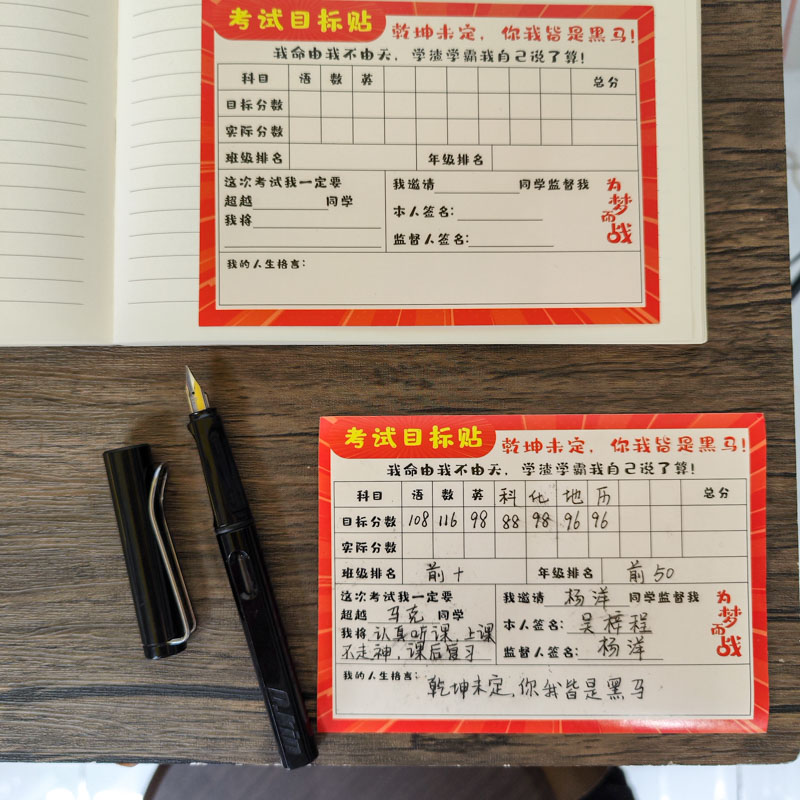 考试目标贴 乾坤未定，你我皆是黑马！
我命由我不由天，学渣学霸我自己说了算！
科目 语 数 英 总分
目标分数
实际分数
班级排名 年级排名
这次考试我一定要
超越 同学
我将
我邀请 同学监督我
本人签名：
监督人签名：
为梦而战
我的人生格言：
考试目标贴 乾坤未定，你我皆是黑马！
我命由我不由天，学渣学霸我自己说了算！
科目 语 数 英 科 化 地 历 总分
目标分数 108 116 98 88 98 96 96
实际分数
班级排名 前十 年级排名 前50
这次考试我一定要
超越 马克 同学
我将 认真听课，上课
不走神，课后复习
我邀请 杨洋 同学监督我
本人签名：吴梓程
监督人签名：杨洋
为梦而战
我的人生格言：乾坤未定，你我皆是黑马